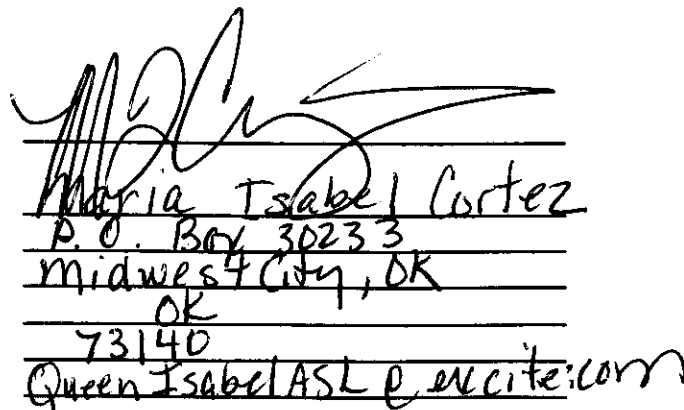 Maria Isabel Cortez
P.O. Box 30233
Midwest City, OK
OK
73140
QueenIsabelASL@excite.com